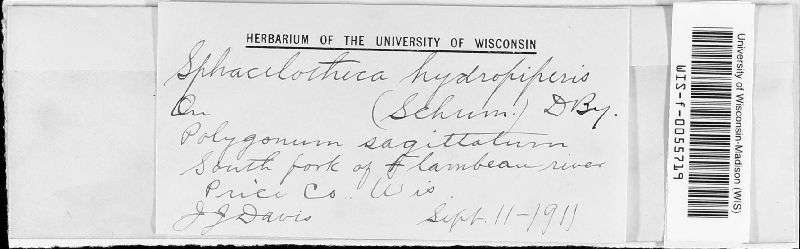 HERBARIUM OF THE UNIVERSITY OF WISCONSIN
Sphacelotheca hydropiperis
On (Schum.) DBy.
Polygonum sagittatum
South fork of Flambeau river
Price Co. Wis.
J J Davis Sept. 11-1911
University of Wisconsin-Madison (WIS)
WIS-f-0055719